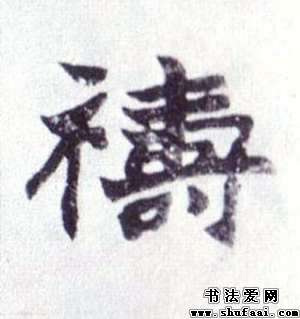 禱
书法爱网
www.shufaai.com